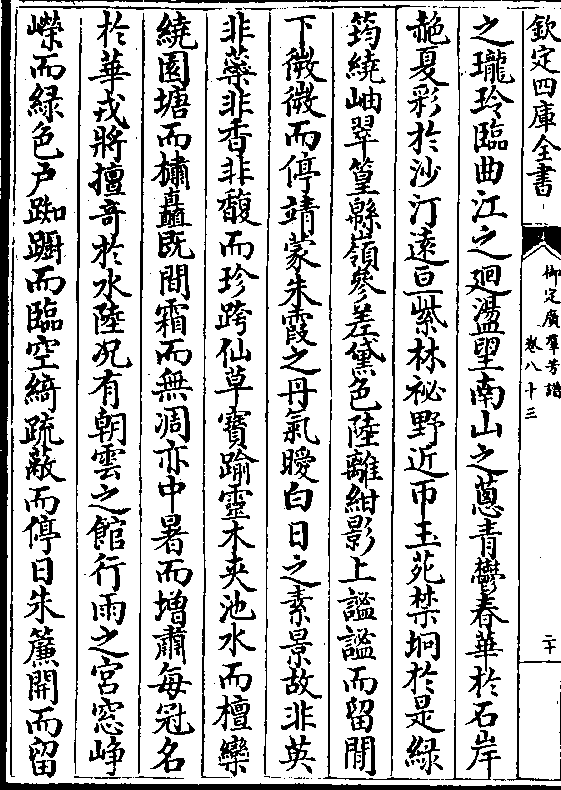 欽定四庫全書
御定廣羣芳譜
卷八十三
二十
之瓏玲臨曲江之廻盪望南山之蔥青鬱春華於石岸
赩夏彩於沙汀遠亘紫林祕野近帀玉苑禁坰於是綠
筠繞岫翠篁緜嶺參差黛色陸離紺影上謐謐而留閒
下微微而停靖蒙朱霞之丹氣曖白日之素景故非英
非藥非香非馥而珍跨仙草寶踰靈木夾池水而檀欒
繞園塘而橚矗既間霜而無凋亦中暑而增肅每冠名
於華戎將擅奇於水陸况有朝雲之館行雨之宮窓崢
嶸而緑色户踟躕而臨空綺疏蔽而停日朱簾開而留